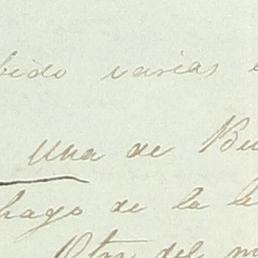 bido varias
una de Bu
hago de la le
Otra del